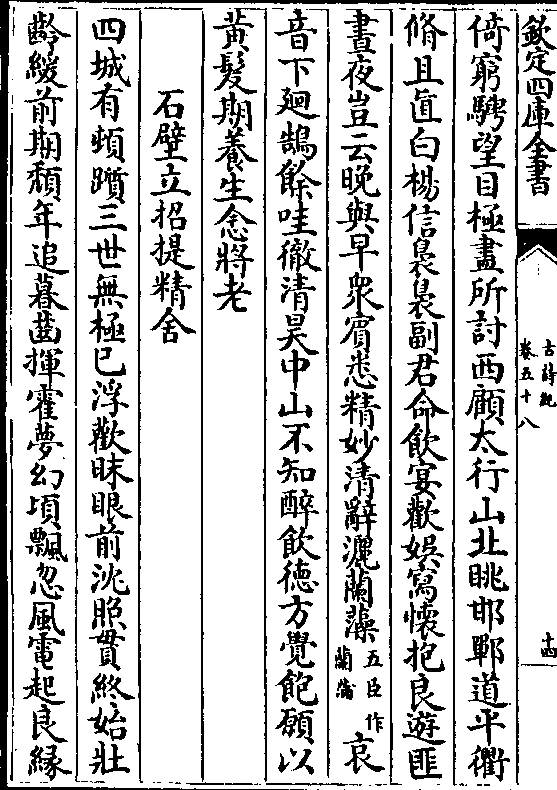 欽定四庫全書
古詩紀
卷五十八
十四
倚窮騁望目極盡所討西顧太行山北眺邯鄲道平衢
脩且直白楊信裊裊副君命飲宴歡娛寫懷抱良遊匪
晝夜豈云晚與早衆賓悉精妙清辭灑蘭藻五臣作蘭蕩哀
音下迴鵠餘哇徹清昊中山不知醉飲德方覺飽願以
黄髮期養生念將老
石壁立招提精舍
四城有頓躓三世無極已浮歡昧眼前沈照貫終始壯
齡緩前期頽年追暮齒揮霍夢幻頃飄忽風電起良緣